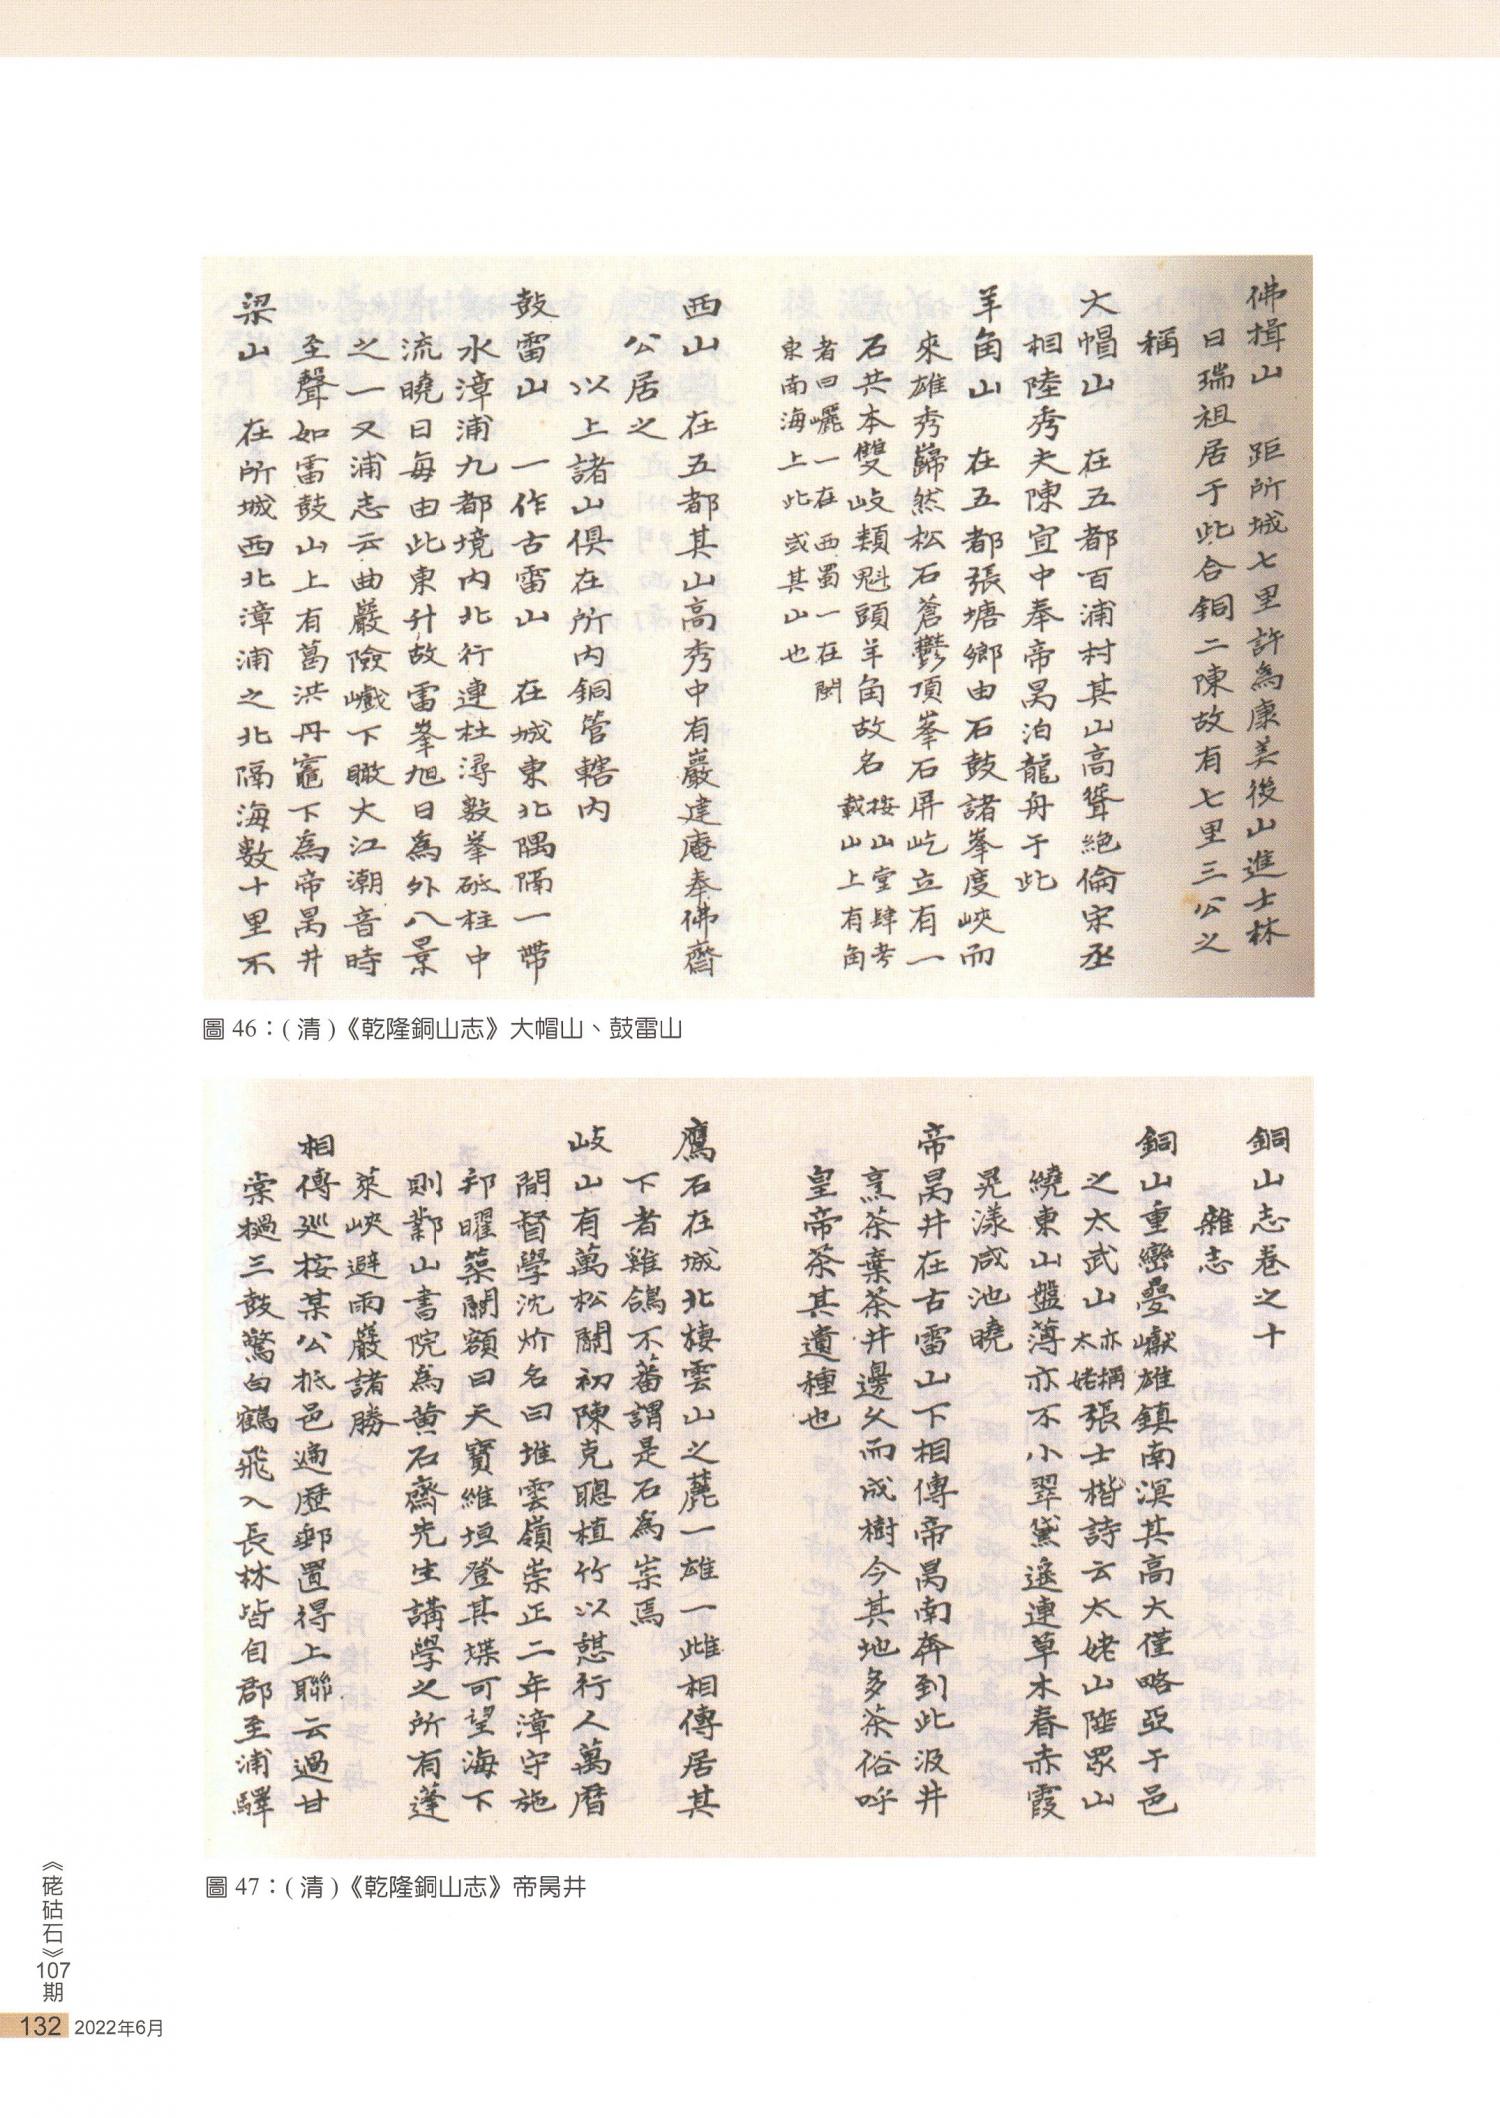 佛揖山　距所城七里許為康美後山進士林
日瑞祖居于此合銅二陳故有七里三公之
稱
大帽山　在五都百浦村其山高聳絕倫宋丞
相陸秀夫陳宜中奉帝昺泊龍舟于此
羊角山　在五都張塘鄉由石鼓諸峯度峽而
來雄秀巋然松石蒼鬱頂峯石屏屹立有一
石共本雙岐類魁頭羊角故名按山堂肆考
載山上有角
者曰㠣一在西蜀一在閩
東南海上此或其山也
西山　在五都其山高秀中有巖達庵奉佛齋
公居之
以上諸山俱在所內銅管轄內
鼓雷山　一作古雷山　在城東北隅隔一帶
水漳浦九都境內北行連杜潯數峯砥柱中
流曉日每由此東升故雷峯旭日為外八景
之一又浦志云曲巖險巇下瞰大江潮音時
至聲如雷鼓山上有葛洪丹竈下為帝昺井
梁山　在所城西北漳浦之北隔海數十里不
圖 46：( 清 )《乾隆銅山志》大帽山、鼓雷山
銅山志卷之十
雜志
銅山重巒疊巘雄鎮南溟其高大僅略亞于邑
之太武山亦稱
太姥張士楷詩云太姥山陞眾山
繞東山盤薄亦不小翠黛遙連草木春赤霞
晃漾咸池曉
帝昺井在古雷山下相傳帝昺南奔到此汲井
烹茶葉茶井邊久而成樹今其地多茶俗呼
皇帝茶其遺種也
鷹石在城北棲雲山之麓一雄一雌相傳居其
下者雞鴿不蕃謂是石為祟焉
岐山有萬松關初陳克聰植竹以憩行人萬曆
間督學沈妎名曰堆雲嶺崇正二年漳守施
邦曜築關額曰天寶維垣登其堞可望海下
則鄴山書院為黃石齋先生講學之所有蓬
萊峽避雨巖諸勝
相傳巡按某公抵邑遍歷郵置得上聯云過甘
棠樾三鼓驚白鶴飛入長林皆自郡至浦驛
圖 47：( 清 )《乾隆銅山志》帝昺井
《硓𥑮石》107期
132 2022年6月